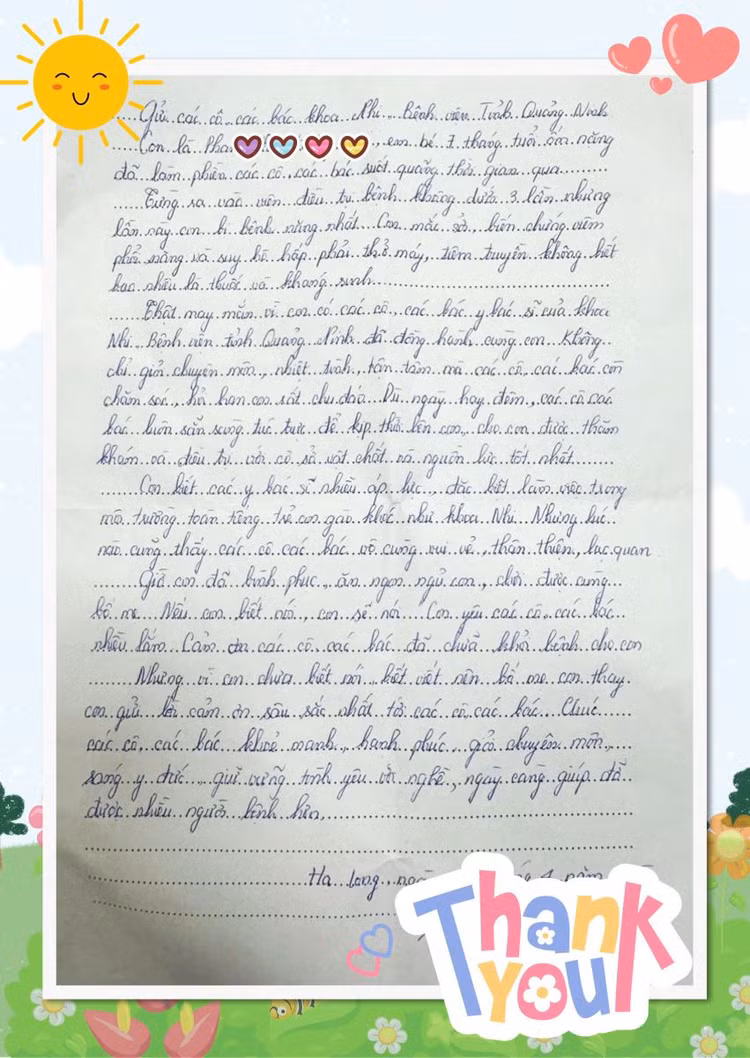 Gửi các cô, các bác khoa Nhi, Bệnh viện Tỉnh Quảng Ninh
Con là Pha , em bé 7 tháng tuổi ốm nặng
đã làm phiền các cô, các bác suốt quãng thời gian qua
Từng ra vào viện điều trị bệnh không dưới 3 lần nhưng
lần này con bị bệnh nặng nhất. Con mắc sởi, biến chứng viêm
phổi nặng và suy hô hấp phải thở máy, tiêm truyền không biết
bao nhiêu là thuốc và kháng sinh
Thật may mắn vì con có các cô, các bác y bác sĩ của khoa
Nhi Bệnh viện tỉnh Quảng Ninh đã đồng hành cùng con. Không
chỉ giỏi chuyên môn, nhiệt tình, tận tâm mà các cô, các bác còn
chăm sóc, hỏi han con rất chu đáo. Dù ngày hay đêm, các cô các
bác luôn sẵn sàng túc trực để kịp thời bên con, cho con được thăm
khám và điều trị với cơ sở vật chất và nguồn lực tốt nhất
Con biết các y bác sĩ nhiều áp lực, đặc biệt làm việc trong
môi trường toàn tiếng trẻ con gào khóc như khoa Nhi. Nhưng lúc
nào cũng thấy các cô các bác vô cùng vui vẻ, thân thiện, lạc quan
Giờ con đã bình phục, ăn ngon ngủ , chơi được cùng
bố mẹ. Nếu con biết nói, con sẽ nói "Con yêu các cô, các bác
nhiều lắm. Cảm ơn các cô, các bác đã chữa khỏi bệnh cho con
Nhưng vì con chưa biết nói, biết viết nên bố mẹ con thay
con gửi lời cảm ơn sâu sắc nhất tới các cô, các bác. Chúc
các cô, các bác khoẻ mạnh, hạnh phúc, giỏi chuyên môn,
sáng y đức, giữ vững tình yêu với nghề, ngày càng giúp đỡ
được nhiều người bệnh hơn.
Hạ Long, năm
Thank
you